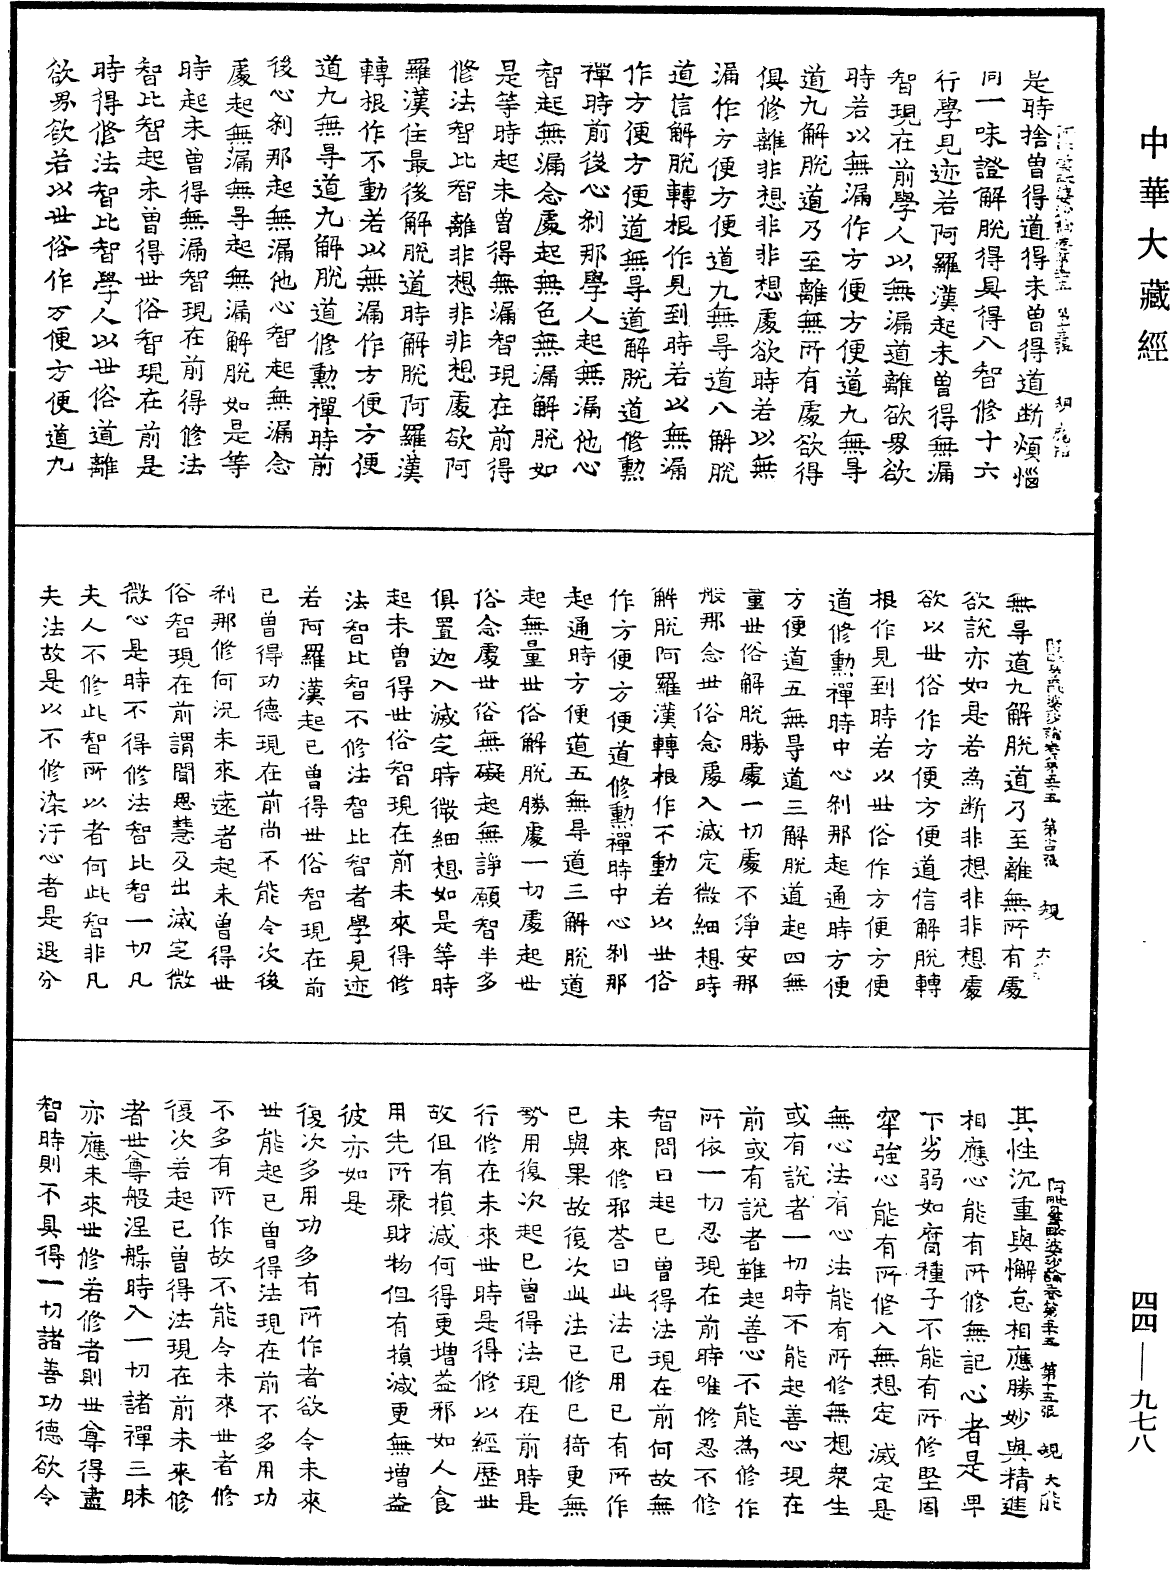 中華大藏經
是時捨曾得道得未曾得道斷煩惱
同一味證解脫得具得八智修十六
行學見迹若阿羅漢起未曾得無漏
智現在前學人以無漏道離欲界欲
時若以無漏作方便方便道九無㝵
道九解脫道乃至離無所有處欲得
俱修離非想非非想處欲時若以無
漏作方便方便道九無㝵道八解脫
道信解脫轉根作見到時若以無漏
作方便方便道無㝵道解脫道修勳
禪時前後心剎那學人起無漏他心
智起無漏念處起無色無漏解脫如
是等時起未曾得無漏智現在前得
修法智比智離非想非非想處欲阿
羅漢住最後解脫道時解脫阿羅漢
轉根作不動若以無漏作方便方便
道九無㝵道九解脫道修勳禪時前
後心剎那起無漏他心智起無漏念
處起無漏無㝵起無漏解脫如是等
時起未曾得無漏智現在前得修法
智比智起未曾得世俗智現在前是
時得修法智比智學人以世俗道離
欲界欲若以世俗作方便方便道九
無㝵道九解脫道乃至離無所有處
欲說亦如是若為斷非想非非想處
欲以世俗作方便方便道信解脫轉
根作見到時若以世俗作方便方便
道修勳禪時中心剎那起通時方便
方便道五無㝵道三解脫道起四無
量世俗解脫勝處一切處不淨安那
般那念世俗念處入滅定微細想時
解脫阿羅漢轉根作不動若以世俗
作方便方便道修勳禪時中心剎那
起通時方便道五無㝵道三解脫道
起無量世俗解脫勝處一切處起世
俗念處世俗無礙起無諍願智半多
俱置迦入滅定時微細想如是等時
起未曾得世俗智現在前未來得修
法智比智不修法智比智者學見迹
若阿羅漢起已曾得世俗智現在前
已曾得功德現在前尚不能令次後
剎那修何況未來遠者起未曾得世
俗智現在前謂聞思慧及出滅定微
微心是時不得修法智比智一切凡
夫人不修此智所以者何此智非凡
夫法故是以不修染汙心者是退分
阿毗曇毗婆沙論卷第五五　第十五張　覞　大能
其性沉重與懈怠相應勝妙與精進
相應心能有所修無記心者是卑
下劣弱如腐種子不能有所修堅固
牢強心能有所修入無想定滅定是
無心法有心法能有所修無想眾生
或有說者一切時不能起善心現在
前或有說者雖起善心不能為修作
所依一切忍現在前時唯修忍不修
智問曰起已曾得法現在前何故無
未來修邪荅曰此法已用已有所作
已與果故復次此法已修已猗更無
勢用復次起已曾得法現在前時是
行修在未來世時是得修以經歷世
故但有損減何得更增益邪如人食
用先所聚財物但有損減更無增益
彼亦如是
復次多用功多有所作者欲令未來
世能起已曾得法現在前不多用功
不多有所作故不能令未來世者修
復次若起已曾得法現在前未來修
者世尊般涅槃時入一切諸禪三昧
亦應未來世修若修者則世尊得盡
智時則不具得一切諸善功德欲令
四四—九七八